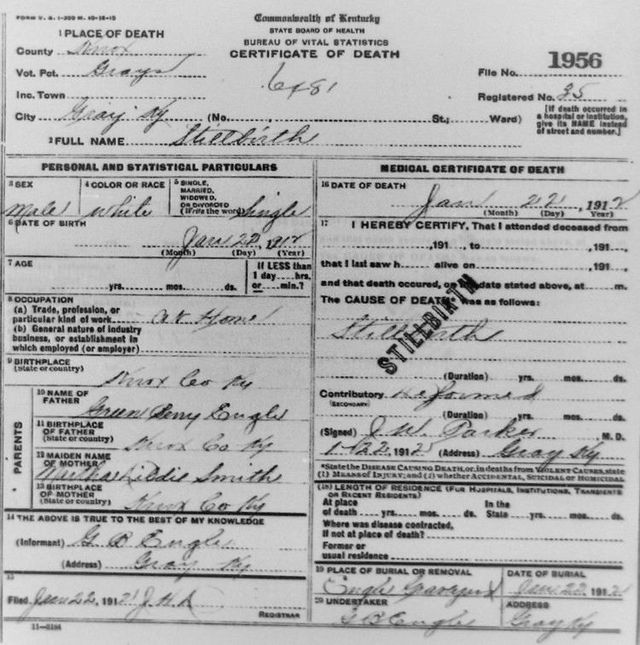 FORM V. S. 1-200 M. 10-18-10
Commonwealth of Kentucky
STATE BOARD OF HEALTH
BUREAU OF VITAL STATISTICS
CERTIFICATE OF DEATH
1 PLACE OF DEATH
County Knox
Vot. Pct. Grays
Inc. Town
City Gray Ky (No. St.; Ward)
File No. 1956
Registered No. 35
[If death occurred in a hospital or institution, give its NAME instead of street and number.]
2 FULL NAME Stillbirth
PERSONAL AND STATISTICAL PARTICULARS
3 SEX
Male
4 COLOR OR RACE
White
5 SINGLE, MARRIED, WIDOWED, OR DIVORCED (Write the word) Single
6 DATE OF BIRTH
Jan 22, 1912
(Month) (Day) (Year)
7 AGE
yrs. mos. ds.
If LESS than 1 day hrs. or min.?
8 OCCUPATION
(a) Trade, profession, or particular kind of work At Home
(b) General nature of industry business, or establishment in which employed (or employer)
9 BIRTHPLACE
(State or country)
Knox Co Ky
PARENTS
10 NAME OF FATHER
Green Berry Engle
11 BIRTHPLACE OF FATHER
(State or country)
Knox Co Ky
12 MAIDEN NAME OF MOTHER
Smith
13 BIRTHPLACE OF MOTHER
(State or country)
Knox Co Ky
14 THE ABOVE IS TRUE TO THE BEST OF MY KNOWLEDGE
(Informant) G B Engle
(Address) Gray Ky
15
Filed Jan 22, 1912
REGISTRAR
11-3184
MEDICAL CERTIFICATE OF DEATH
16 DATE OF DEATH
Jan 22, 1912
(Month) (Day) Year)
17 I HEREBY CERTIFY, That I attended deceased from
, 191 , to , 191 ,
that I last saw h alive on , 191 ,
and that death occured, on the date stated above, at m.
The CAUSE OF DEATH was as follows:
STILLBIRTH
Stillbirth
(Duration) yrs. mos. ds.
Contributory
(SECONDARY)
(Duration) yrs. mos. ds.
(Signed) J. W. Parker M. D.
1-22 1912 (Address) Gray Ky
*State the DISEASE CAUSING DEATH, or, in deaths from VIOLENT CAUSES, state (1) MEANS OF INJURY; and (2) whether ACCIDENTAL, SUICIDAL or HOMICIDAL
(18) LENGTH OF RESIDENCE (FOR HOSPITALS, INSTITUTIONS, TRANSIENTS OR RECENT RESIDENTS)
At place of death yrs. mos. ds. In the State yrs. mos. ds.
Where was disease contracted, if not at place of death?
Former or usual residence
19 PLACE OF BURIAL OR REMOVAL
Engle Graveyard
DATE OF BURIAL
Jan 22, 1912
20 UNDERTAKER
G B Engle
ADDRESS
Gray Ky